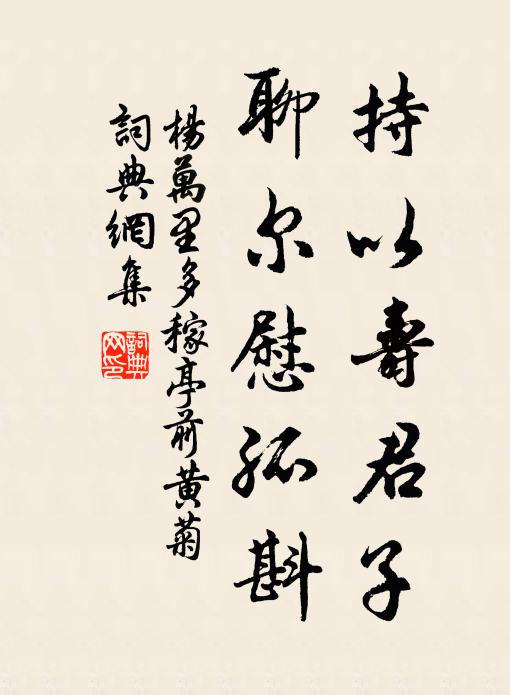 持以壽君子
聊尔慰孤斟
楊萬里多稼亭前黄菊
詞典網集
詞典网印